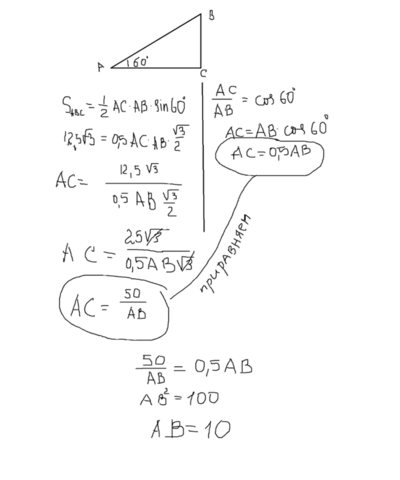 B
A 60° C
S_ABC = 1/2 AC·AB·sin60°
12,5√3 = 0,5 AC·AB·√3/2
AC = 12,5√3 / 0,5 AB √3/2
AC = 25√3 / 0,5AB√3
AC = 50/AB
AC/AB = cos60°
AC = AB·cos60°
AC = 0,5AB
приравняем
50/AB = 0,5AB
AB² = 100
AB = 10